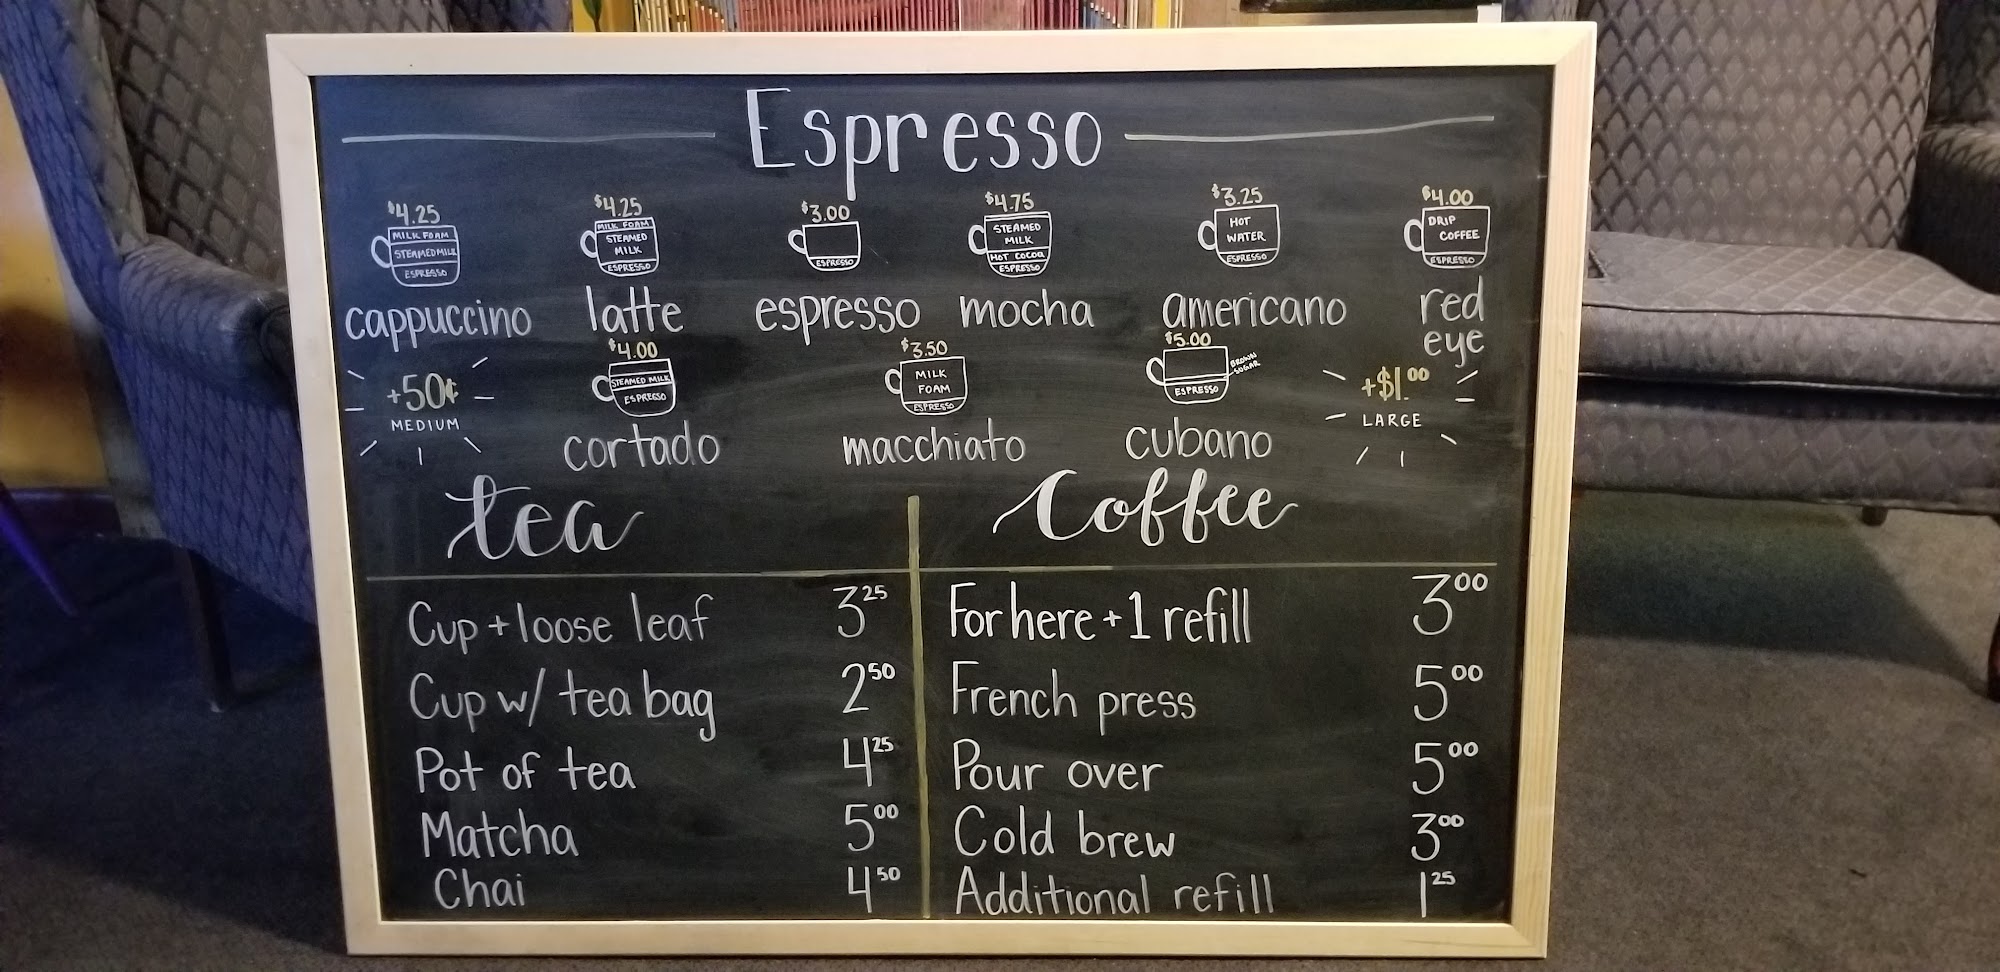 Espresso
$4.25 $4.25 $3.00 $4.75 $3.25 $4.00
MILK FOAM
STEAMED MILK
ESPRESSO
MILK FOAM
STEAMED
MILK
ESPRESSO
ESPRESSO
STEAMED
MILK
HOT COCOA
ESPRESSO
HOT
WATER
ESPRESSO
DRIP
COFFEE
ESPRESSO
cappuccino latte espresso mocha americano red
eye
+50¢
MEDIUM
$4.00
STEAMED MILK
ESPRESSO
cortado
$3.50
MILK
FOAM
ESPRESSO
macchiato
$5.00
BROWN
SUGAR
ESPRESSO
cubano
+$1.00
LARGE
tea
Cup + loose leaf 3.25
Cup w/ tea bag 2.50
Pot of tea 4.25
Matcha 5.00
Chai 4.50
Coffee
For here + 1 refill 3.00
French press 5.00
Pour over 5.00
Cold brew 3.00
Additional refill 1.25